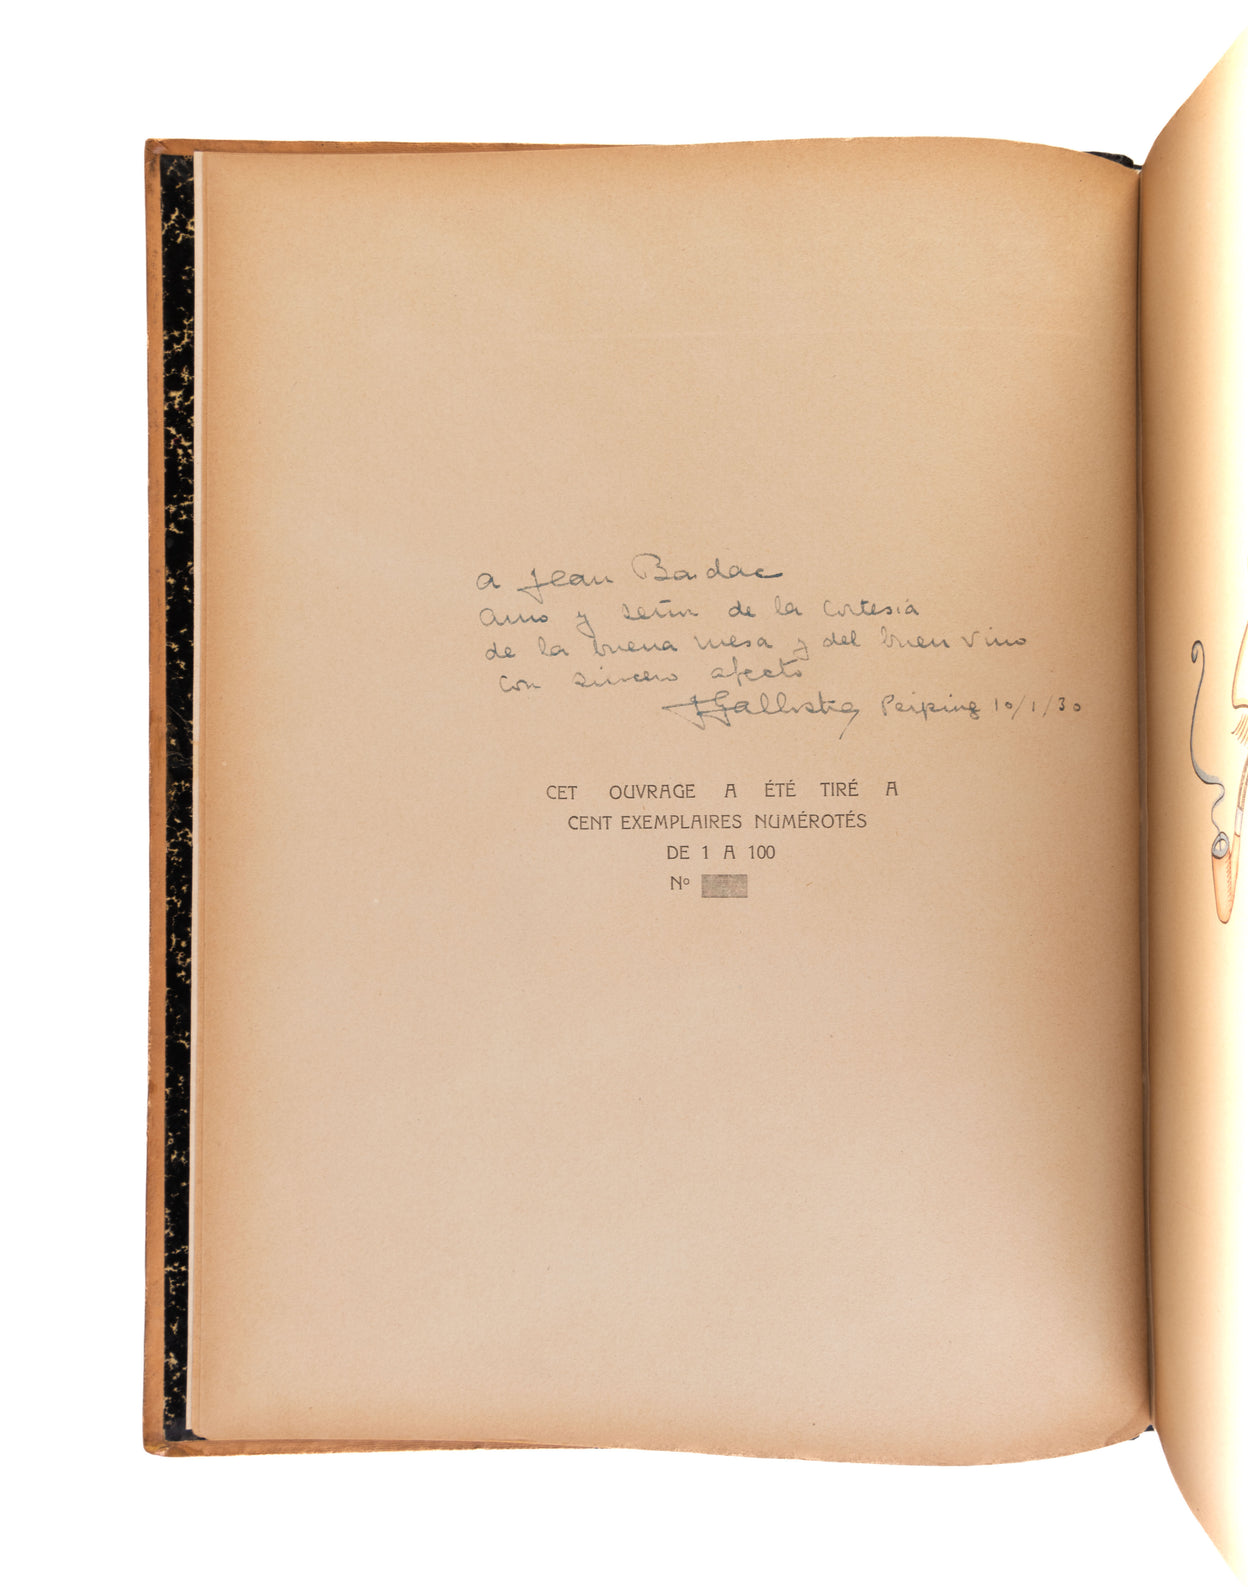 a Jean Badac
Amo y señor de la Cortesia
de la buena mesa y del buen vino
con sincero afecto
JGallostra Peiping 10/1/30
CET OUVRAGE A ÉTÉ TIRÉ A
CENT EXEMPLAIRES NUMÉROTÉS
DE 1 A 100
Nº